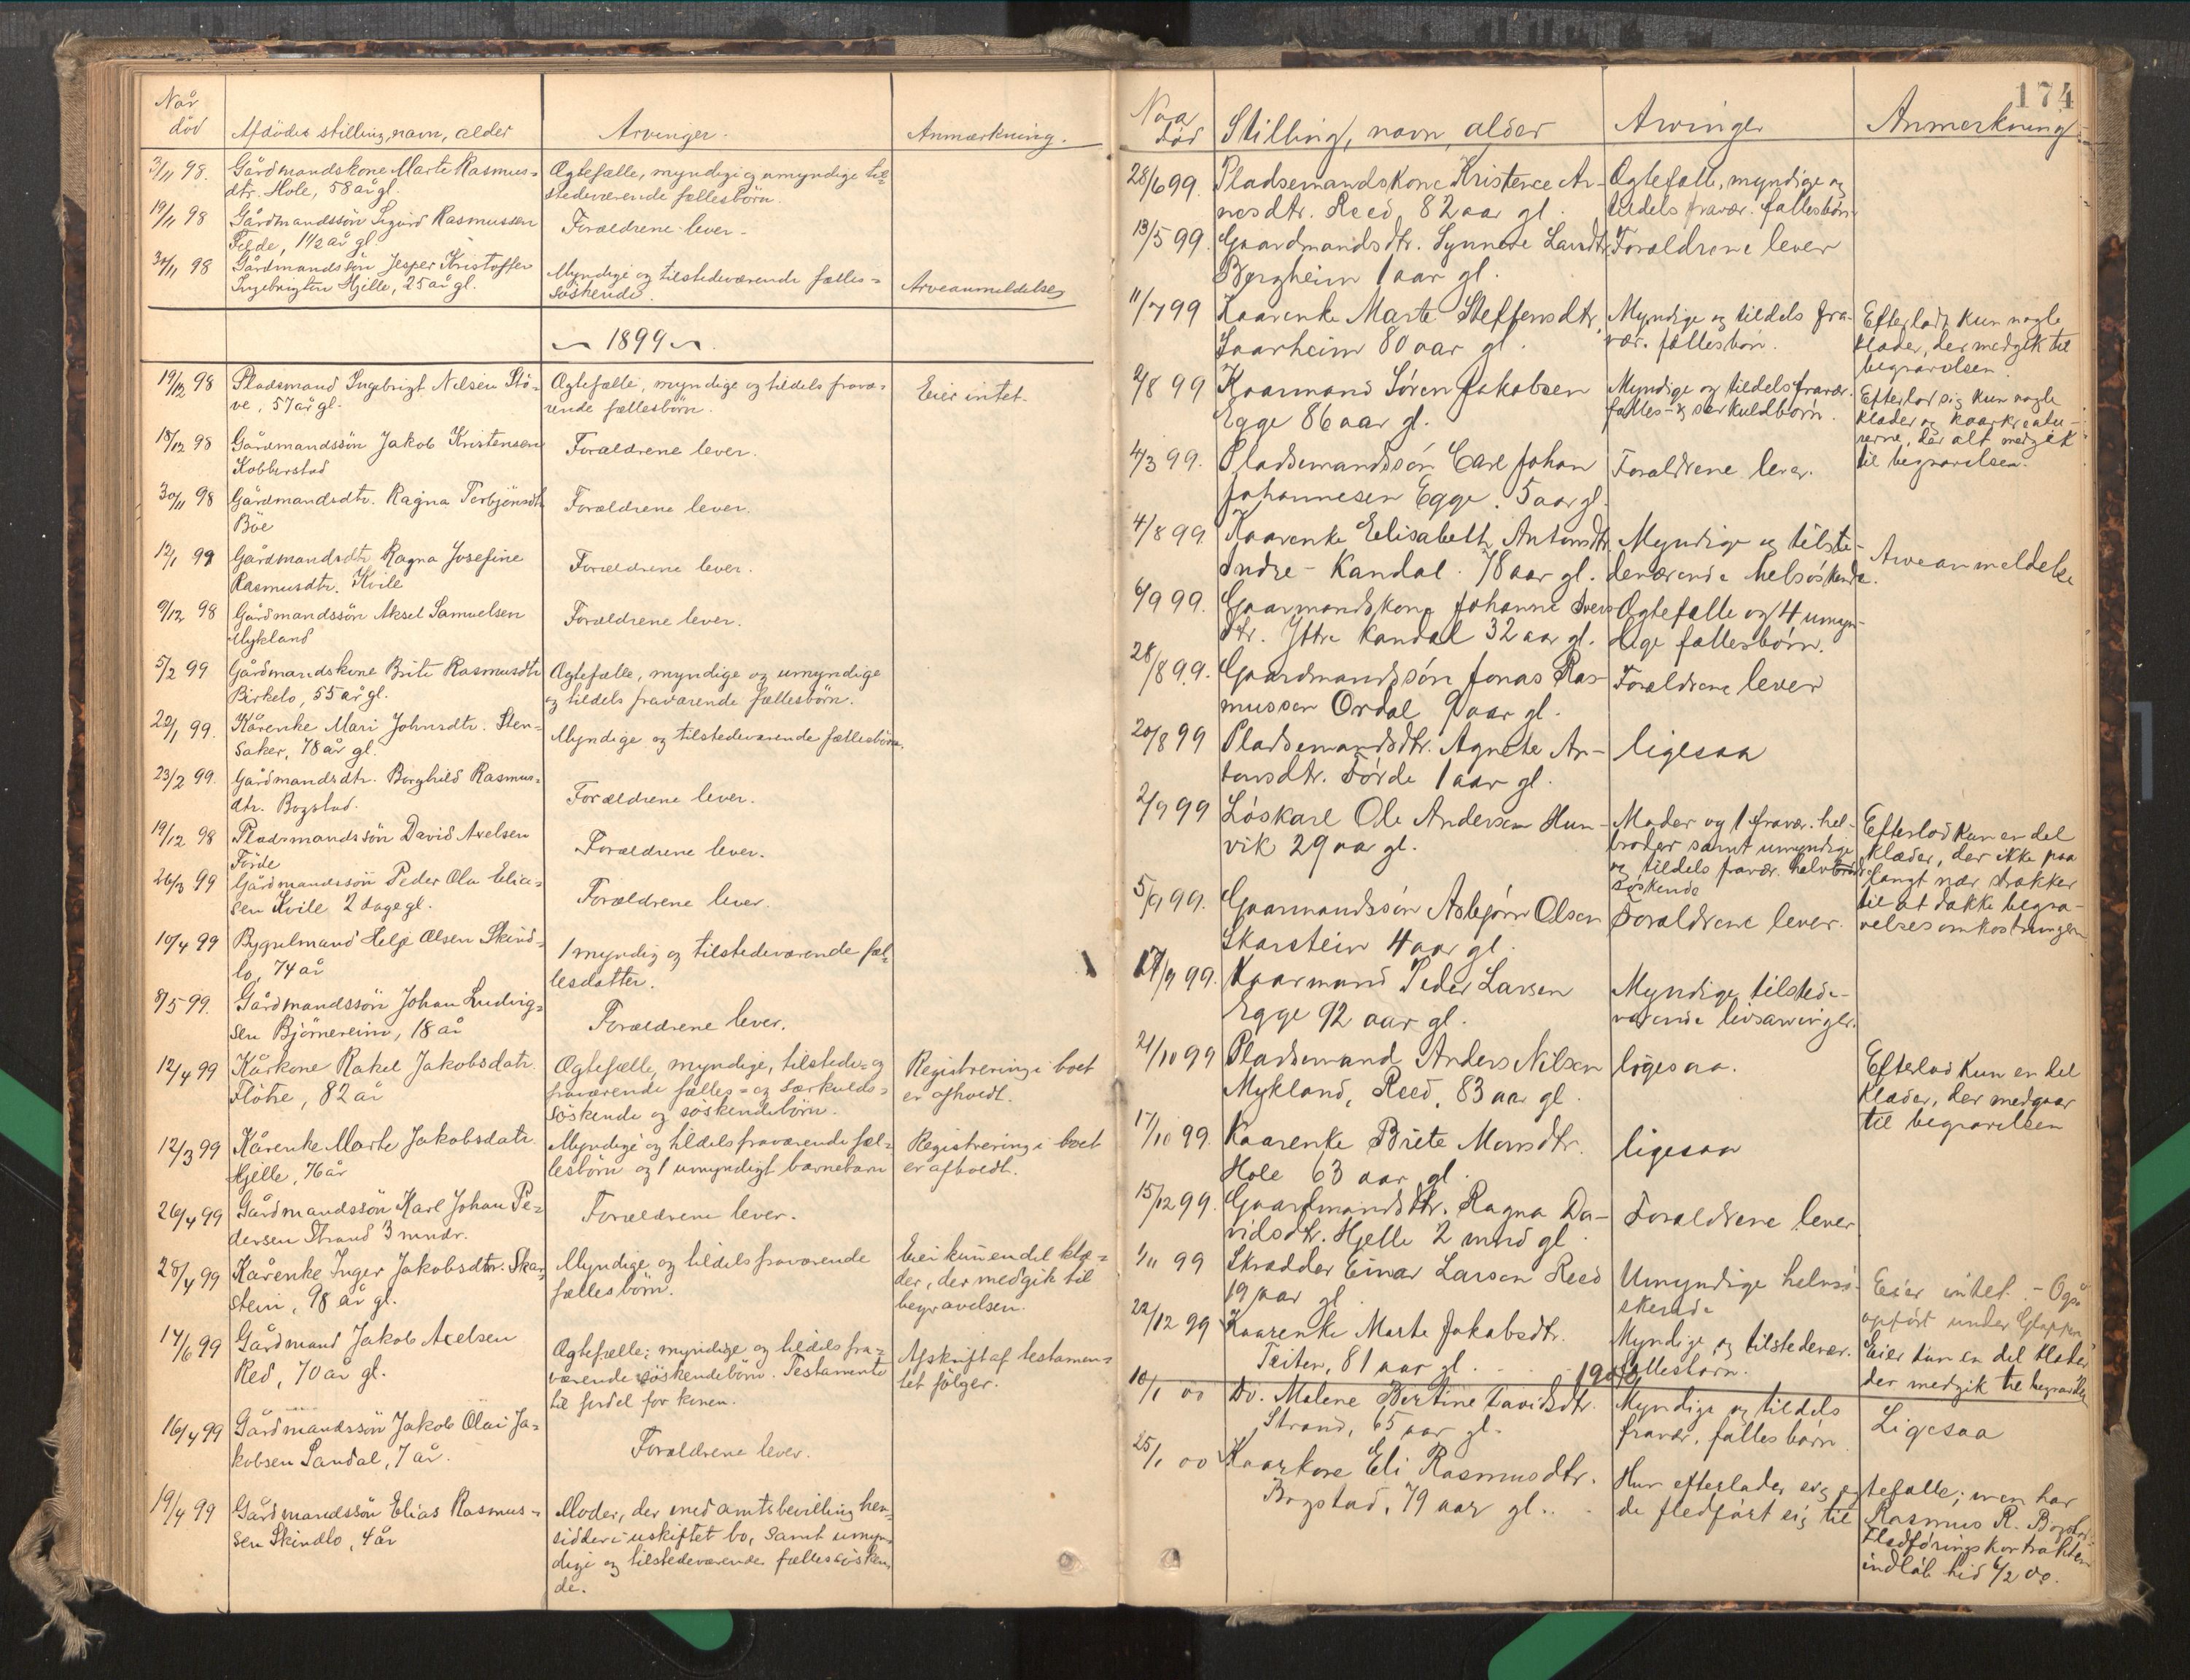 Når
død
Afdødes stilling, navn, alder
Arvinger.
Anmærkning.
3/11 98.
Gårdmandskone Marte Rasmus=
dtr. Hole, 58 år gl.
Ægtefælle, myndige og umyndige til=
stedeværende fællesbörn.
19/11 98
Gårdmandssön Sigurd Rasmussen
1 1/2 år gl.
Forældrene lever.
30/11 98
Gårdmandssön Jesper Kristoffer
Ingebrigtsen Hjelle, 25 år gl.
Myndige og tilstedeværende fælles=
söskende.
Arveanmeldelse
1899
19/12 98
Pladsmand Ingebrigt Nilsen Stö=
ve, 57 år gl.
Ægtefælle, myndige og tildels fravæ=
rende fællesbörn.
Eier intet.
18/12 98
Gårdmandssön Jakob Kristensen
Kobberstad
Forældrene lever.
30/11 98
Gårdmandsdtr. Ragna Torbjönsdtr
Böe
Forældrene lever.
12/1 99
Gårdmandsdtr Ragna Josefine
Rasmusdtr. Kvile
Forældrene lever.
9/12 98
Gårdmandssön Aksel Samuelsen
Mykland
Forældrene lever.
5/2 99
Gårdmandskone Brite Rasmusdtr
Birkelo, 55 år gl.
Ægtefælle, myndige og umyndige
og tildels fraværende fællesbörn.
22/1 99.
Kårenke Mari Johnsdtr. Sten=
saker, 78 år gl.
Myndige og tilstedeværende fællesbörn.
23/2 99.
Gårdmandsdtr. Borghild Rasmus=
dtr. Bogstad.
Forældrene lever.
19/12 98
Pladsmandssön David Axelsen
Förde
Forældrene lever.
26/3 99
Gårdmandssön Peder Ola Elia=
sen Kvile 2 dage gl.
Forældrene lever.
10/4 99
Bygselmand Helje Olsen Skind=
lo, 74 år
1 myndig og tilstedeværende fæl=
lesdatter.
8/5 99.
Gårdmandssön Johan Ludvig=
sen Björnereim, 18 år
Forældrene lever.
12/4 99
Kårkone Rakel Jakobsdatr.
Flötre, 82 år
Ægtefælle, myndige, tilstede= og
fraværende fælles= og særkulds=
söskende og söskendebörn.
Registrering i boet
er afholdt.
12/3 99
Kårenke Marte Jakobsdatr.
Hjelle, 76 år
Myndige og tildels fraværende fæl=
lesbörn og 1 umyndigt barnebarn
Registrering i boet
er afholdt.
26/4 99
Gårdmandssön Karl Johan Pe=
dersen Strand 3 mndr.
Forældrene lever.
28/4 99
Kårenke Inger Jakobsdtr. Skar=
stein, 98 år gl.
Myndige og tildels fraværende
fællesbörn.
Eier kun en del klæ=
der, der medgik til
begravelsen.
17/6 99
Gårdmand Jakob Axelsen
Red, 70 år gl.
Ægtefælle; myndige og tildels fra=
værende söskendebörn. Testamente
til fordel for konen.
Afskrift af testamen=
tet fölger.
16/4 99
Gårdmandssön Jakob Olai Ja=
kobsen Sandal, 7 år.
Forældrene lever.
19/4 99
Gårdmandssön Elias Rasmus=
sen Skindlo, 4 år
Moder, der med amtsbevilling hen=
sidder i uskiftet bo, samt umyn=
dige og tilstedeværende fællessösken=
de.
174
Naar
död
Stilling, navn, alder
Arvinger
Anmerkning.
28/6 99.
Pladsemandskone Kristence Ar-
nesdtr. Reed 82 aar gl.
Ægtefælle, myndige og
tildels fravær. fællesbörn
13/5 99.
Gaardmandsdtr. Synneve Larsdtr.
Bergheim 1 aar gl.
Forældrene lever
11/7 99
Kaarenke Marte Steffensdtr.
Saarheim 80 aar gl.
Myndige og tildels fra-
vær. fællesbörn.
Efterlod kun nogle
klæder, der medgik til
begravelsen.
2/8 99
Kaarmand Sören Jakobsen
Egge 86 aar gl.
Myndige og tildels fravær.
fælles- og særkuldbörn.
Efterlod sig kun nogle
klæder og kaarkreatu-
rerne, der alt medgik
til begravelsen.
4/3 99.
Pladsemandssön Carl Johan
Johannesen Egge. 5 aar gl.
Forældrene lever.
4/8 99
Kaarenke Elisabeth Antonsdtr
Indre-Kandal. 78 aar gl.
Myndige og tilste-
deværende helsöskende.
Arveanmeldelse
6/9 99.
Gaarmandskone Johanne Ivers
dtr. Ytre Kandal 32 aar gl.
Ægtefælle og 4 umyn-
dige fællesbörn.
28/8 99.
Gaardmandssön Jonas Ras-
mussen Ordal 9 aar gl.
Forældrene lever
20/8 99
Pladsemandsdtr. Agnete An-
tonsdtr. Förde 1 aar gl.
ligesaa
2/9 99
Löskarl Ole Andersen Hun-
vik 29 aa gl.
Moder og 1 fravær. hel-
broder samt umyndige
og tildels fravær. halv
söskende
Efterlod kun en del
klæder, der ikke paa
langt nær strækker
til at dække begra-
velsesomkostningen
5/9 99.
Gaarmandssön Asbjörn Olsen
Skarstein 4 aar gl.
Forældrene lever.
17/9 99.
Kaarmand Peder Larsen
Egge 92 aar gl.
Myndige tilstede-
værende livsarvinger.
21/10 99
Pladsemand Anders Nilsen
Mykland, Reed, 83 aar gl.
ligesaa.
Efterlod kun en del
klæder, der medgaar
til begravelsen
17/10 99.
Kaarenke Brite Monsdtr.
Hole 63 aar gl.
ligesaa
15/12 99.
Gaardmandsdtr. Ragna Da-
vidsdtr. Hjelle 2 mnd gl.
Forældrene lever
1/11 99
Skrædder Einar Larsen Reed
19 aar gl.
Umyndige helsö-
skende
Eier intet. - Også
opfört under Gloppen
22/12 99
Kaarenke Marte Jakobsdtr.
Teiten, 81 aar gl.
Myndige og tilstedevær.
fællesbörn.
Eier kun en del klæder
der medgik til begravelsen
1900
10/1 00
Do. Malene Bertine Davidsdtr.
Strand, 65 aar gl.
Myndige og tildels
fravær. fællesbörn
Ligesaa
25/1 00
Kaarkone Eli Rasmusdtr.
Bogstad, 79 aar gl.
Hun efterlader sig ægtefælle; men har
de fledfört sig til Rasmus R. Bogstad.
Fledföringskontrakten
indlöb hid 6/2 00.